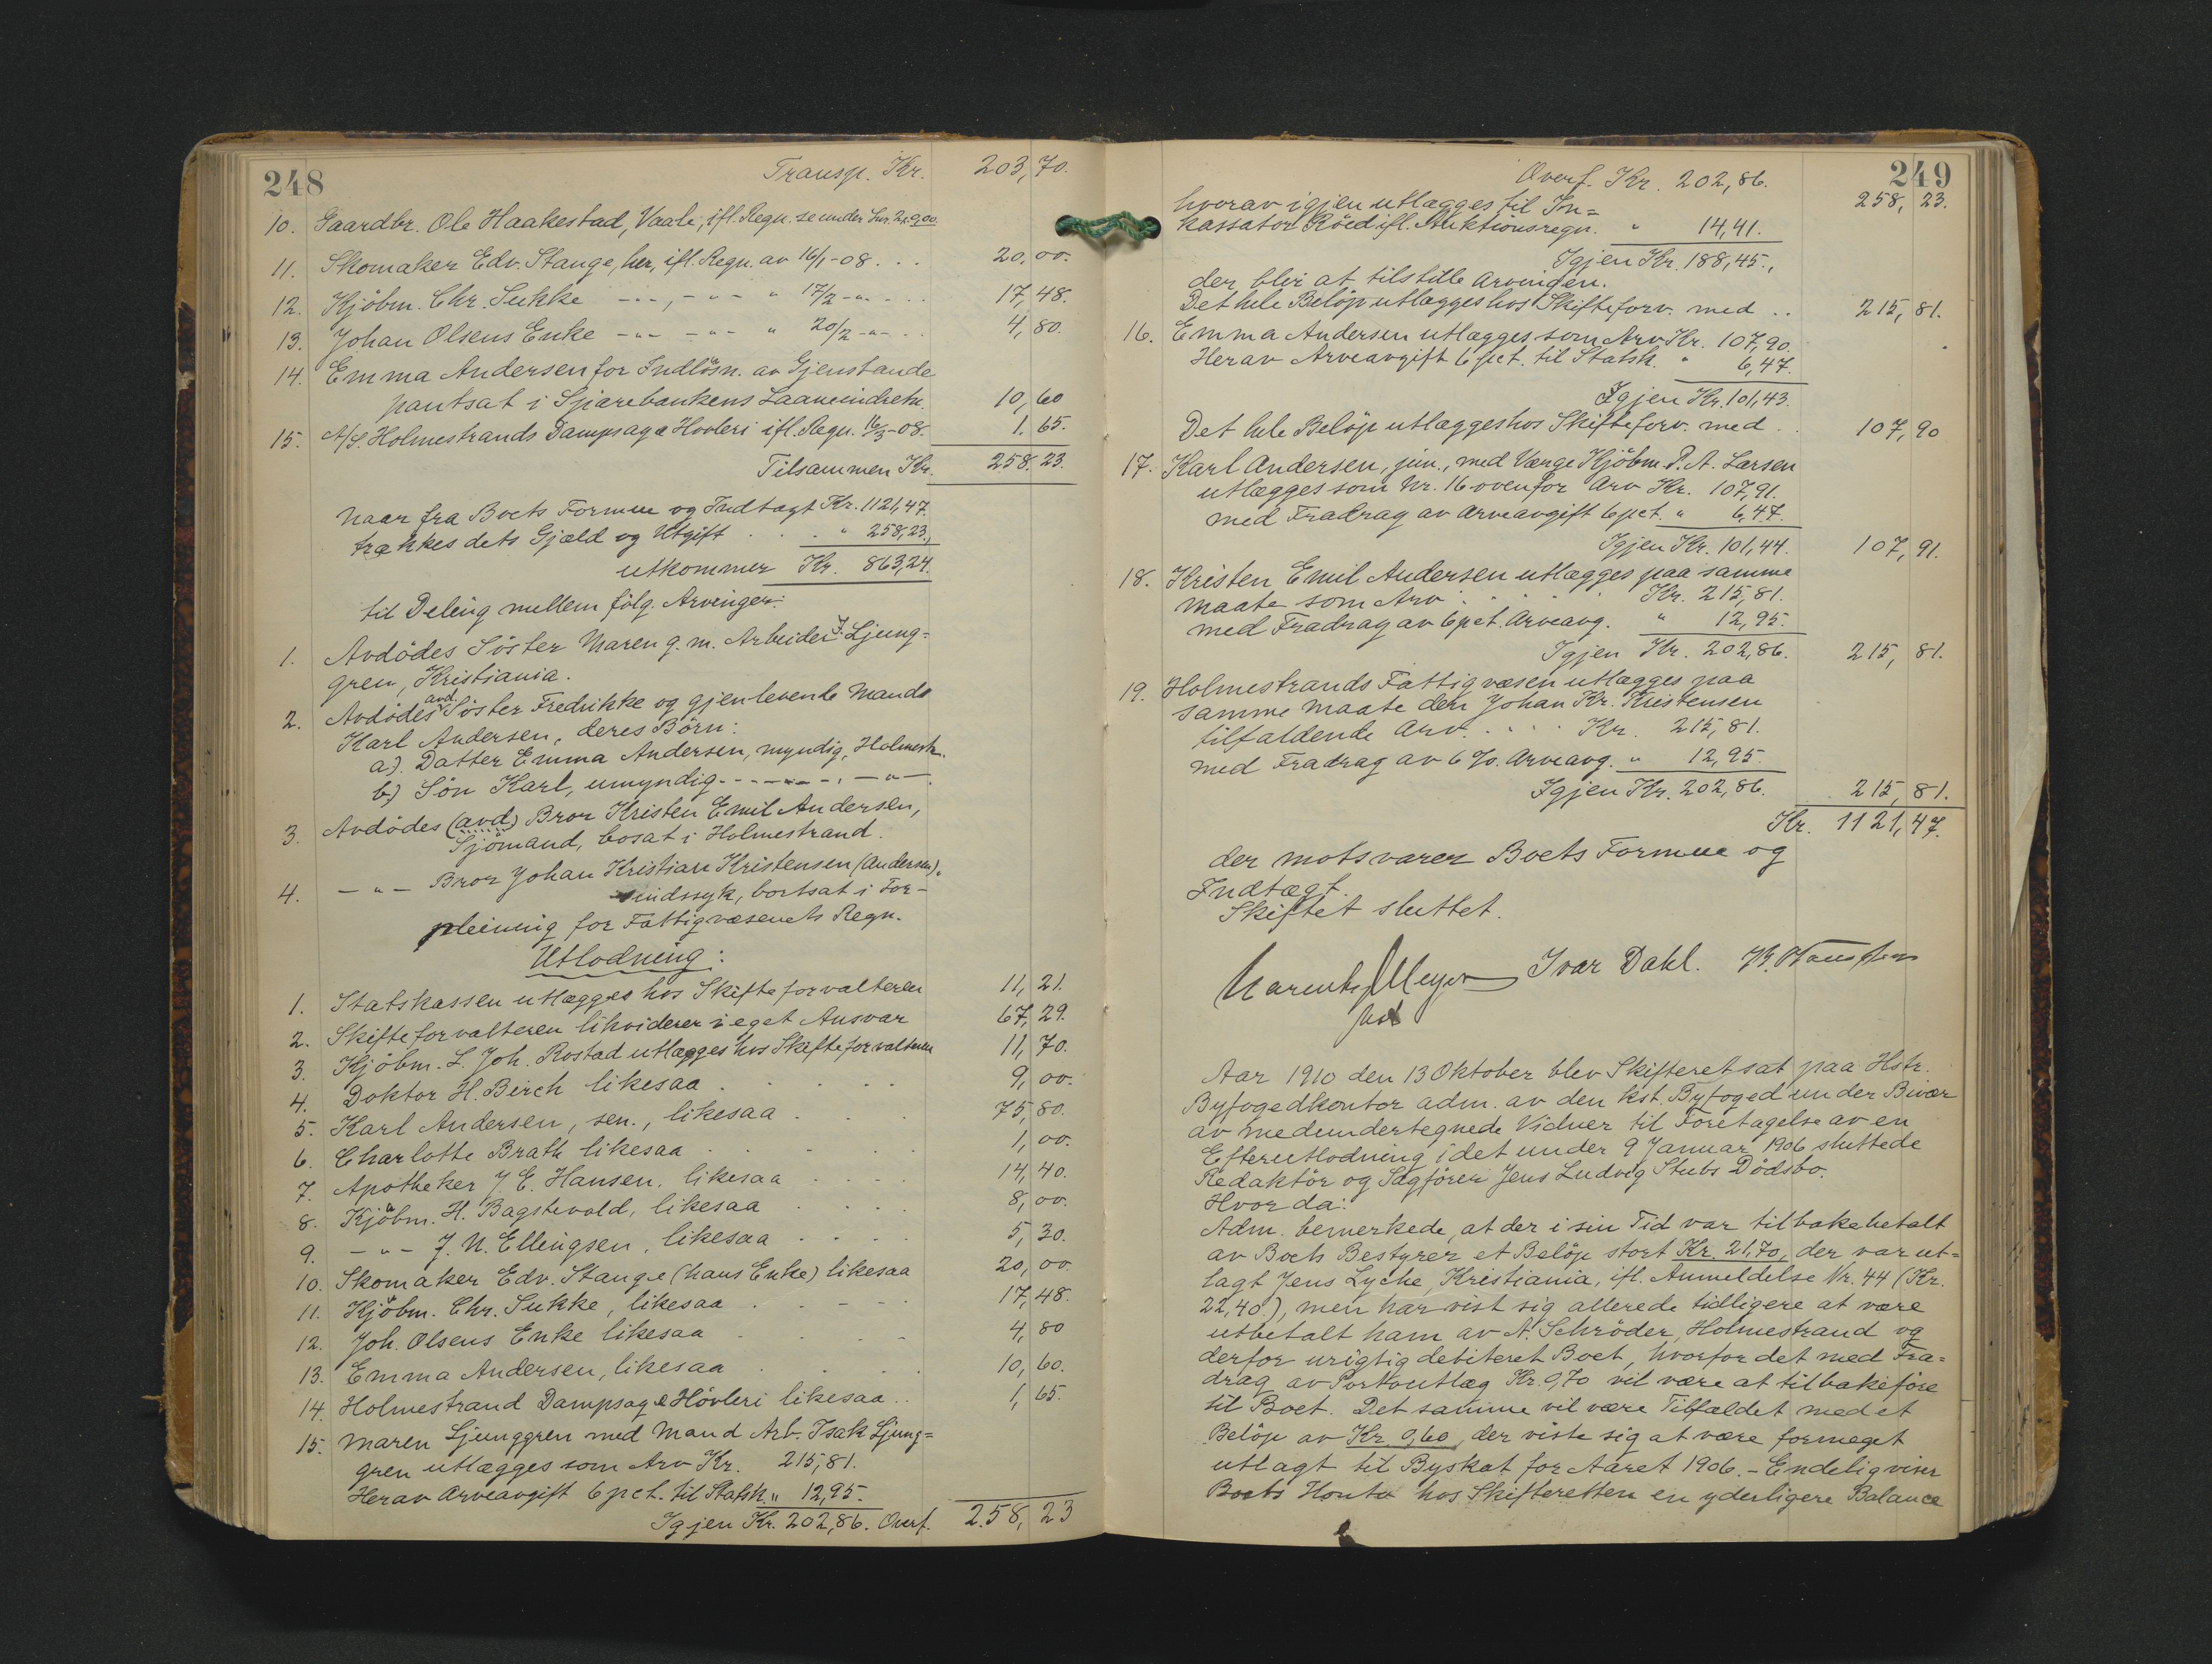 248
Transp. Kr. 203,70.
10. Gaardbr. Ole Haakestad, Vaale, ifl. Regn. se under
11. Skomaker Edv. Stange, her, ifl. Regn. av 16/1-08 . . . 20,00.
12. Kjöbm. Chr. Sukke -"- -"- " 17/2-"- . . 17,48.
13. Johan Olsens Enke -"- -"- " 20/2-"- . . 4,80.
14. Emma Andersen for Indlösn. av Gjenstande
pantsat i Sparebankens Laaneindretn. 10,60
15. A/S. Holmestrands Dampsag & Hövleri ifl. Regn. 16/3-08. 1.65.
Tilsammen Kr. 258.23.
Naar fra Boets Formue og Indtægt Kr. 1121,47.
trækkes dets Gjæld og Utgift . . . " 258,23.,
utkommer Kr. 863,24.
til Deling mellem fölg. Arvinger:
1. Avdödes Söster Maren g. m. Arbeider I. Ljung=
gren, Kristiania.
2. Avdödes avd. Söster Fredrikke og gjenlevende Mands
Karl Andersen, deres Börn:
a). Datter Emma Andersen, myndig, Holmestr.
b.) Sön Karl, umyndig - - -"- - -"-
3. Avdödes (avd) Bror Kristen Emil Andersen,
Sjömand, bosat i Holmestrand.
4. -"- Bror Johan Kristian Kristensen (Andersen),
sindssyk, bortsat i For-
pleining for Fattigvæsenets Regn.
Utlodning:
1. Statskassen utlægges hos Skifteforvalteren 11,21.
2. Skifteforvalteren likviderer i eget Ansvar 67,29.
3. Kjöbm. L. Joh. Rostad utlægges hos Skifteforvalteren 11,70.
4. Doktor H. Birch likesaa . . . . . 9,00.
5. Karl Andersen, sen., likesaa . . . 75,80.
6. Charlotte Brath likesaa . . . . . 1,00.
7. Apotheker J. E. Hansen, likesaa . . . . 14,40.
8. Kjöbm. H. Bagstevold, likesaa . . . . 8,00.
9. -"- J. N. Ellingsen, likesaa . . . . . 5,30.
10. Skomaker Edv. Stange (hans Enke) likesaa 20,00.
11. Kjöbm. Chr. Sukke, likesaa . . . . 17,48.
12. Joh. Olsens Enke likesaa . . . . 4,80
13. Emma Andersen, likesaa . . . . 10,60.
14. Holmestrand Dampsag & Hövleri likesaa . . 1,65.
15. Maren Ljunggren med Mand Arb. Isak Ljung=
gren utlægges som Arv Kr. 215,81.
Herav Arveavgift 6 pct. til Statsk. " 12,95.
Igjen Kr. 202,86. Overf. 258,23
249
Overf. Kr. 202,86. 258,23.
hvorav igjen utlægges til In=
kassator Röed ifl. Auktionsregn. " 14,41.
Igjen Kr. 188,45.,
der blir at tilstille Arvingen.
Det hele Belöp utlægges hos Skifteforv. med . . 215,81.
16. Emma Andersen utlægges som Arv Kr. 107,90.
Herav Arveavgift 6 pct. til Statsk. " 6,47.
Igjen Kr. 101,43.
Det hele Belöp utlægges hos Skifteforv. med . . 107,90
17. Karl Andersen, jun., med Værge Kjöbm. P. A. Larsen
utlægges som Nr. 16 ovenfor Arv Kr. 107,91.
med Fradrag av Arveavgift 6 pct. " 6,47.
Igjen Kr. 101,44. 107,91.
18. Kristen Emil Andersen utlægges paa samme
Maate som Arv . . . . . Kr. 215,81.
med Fradrag av 6 pct. Arveavg. " 12,95.
Igjen Kr. 202,86. 215,81.
19. Holmestrands Fattigvæsen utlægges paa
samme Maate den Johan Kr. Kristensen
tilfaldende Arv. . . . . Kr. 215,81.
med Fradrag av 6 %. Arveavg. " 12,95.
Igjen Kr. 202,86. 215,81.
Kr. 1121,47.
der motsvarer Boets Formue og
Indtægt.
Skiftet sluttet.
Meyer Ivar Dahl.
Aar 1910 den 13 Oktober blev Skifteret sat paa Hstr.
Byfogedkontor adm. av den kst. Byfoged under Bivær
av medundertegnede Vidner til Foretagelse av en
Efterutlodning i det under 9 Januar 1906 sluttede
Redaktör og Sagförer Jens Ludvig Stubs Dödsbo.
Hvor da:
Adm. bemerkede, at der i sin Tid var tilbakebetalt
av Boets Bestyrer et Belöp stort Kr. 21,70, der var ut=
lagt Jens Lyche, Kristiania, ifl. Anmeldelse Nr. 44 (Kr.
22,40), men har vist sig allerede tidligere at være
utbetalt ham av N. Schröder, Holmestrand og
derfor urigtig debiteret Boet, hvorfor det med Fra=
drag av Portoutlæg Kr. 0,70 vil være at tilbakeföre
til Boet. Det samme vil være Tilfældet med et
Belöp av Kr. 0,60, der viste sig at være formeget
utlagt til Byskat for Aaret 1906. - Endelig viser
Boets Konto hos Skifteretten en yderligere Balance